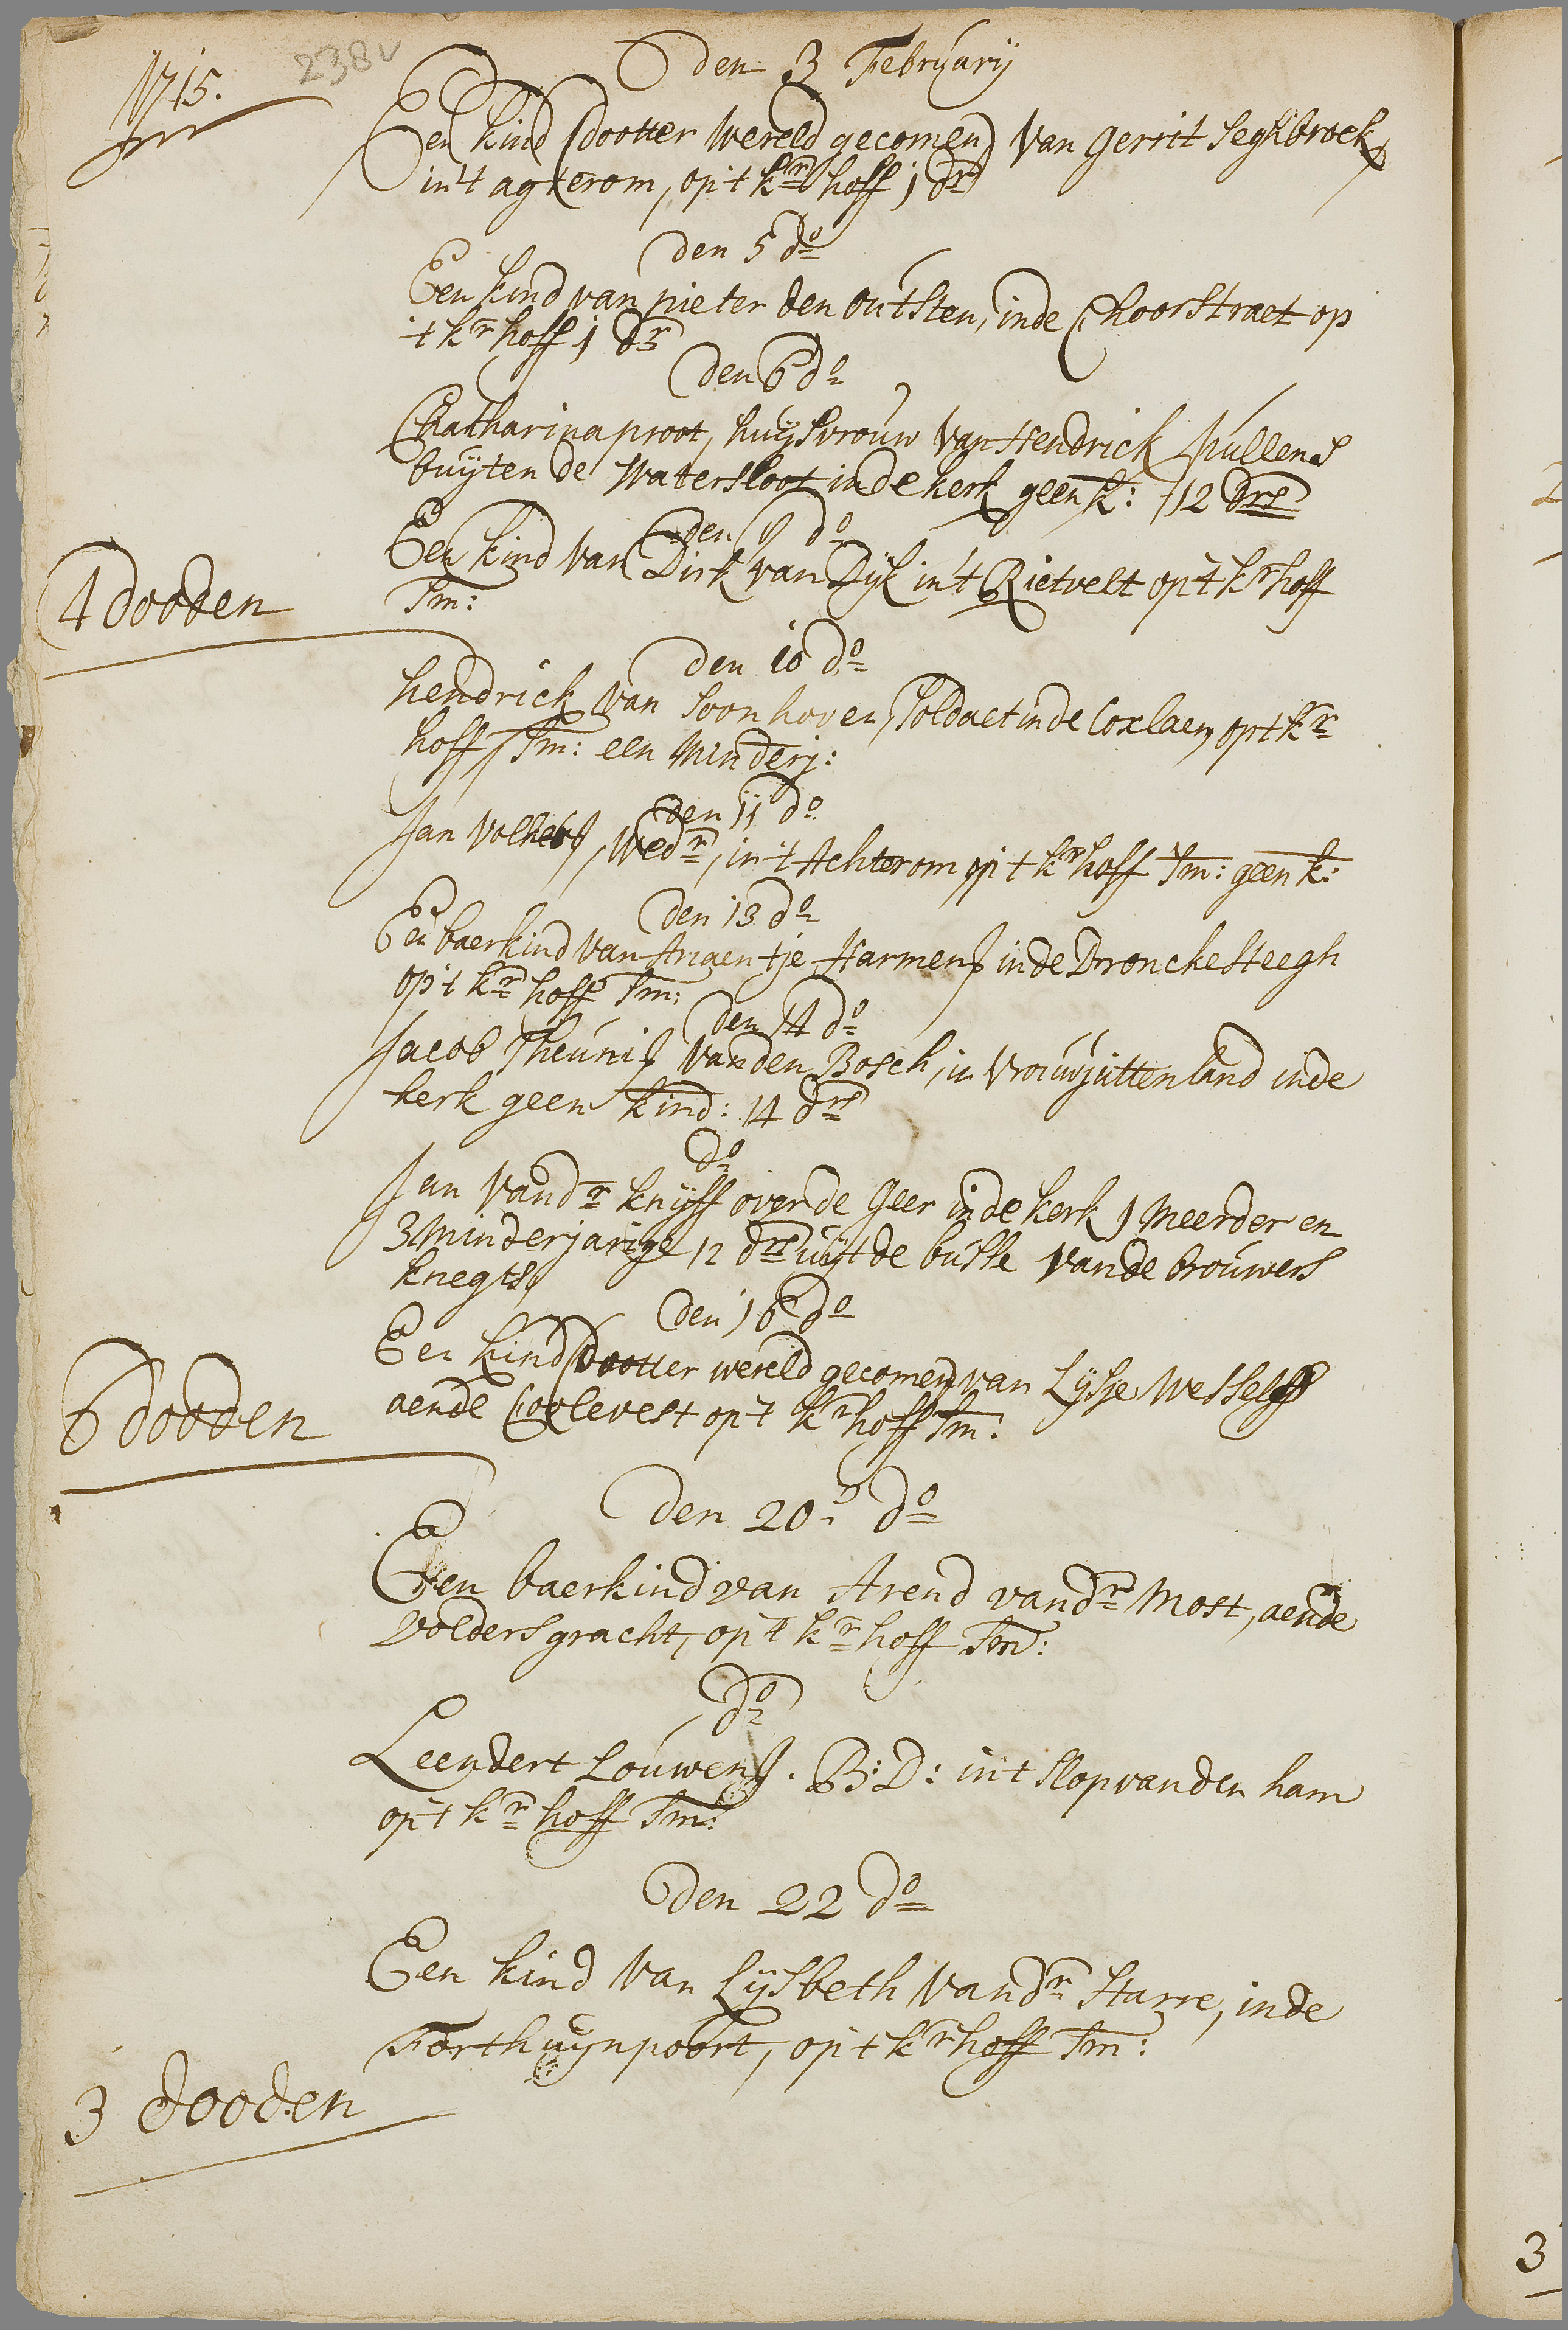 238v
1715.
den 3 February
Een kind (dootter wereld gecomen) van Gerrit Seghbroek,
in't agterom, op't kr hoff 1 dr
den 5 do
Een kind van pieter den outsten, inde Choorstraet op
't kr hoff 1 dr
den 6 do
Chatharina proot, huijsvrouw van Hendrick Mullens
buijten de Watersloot inde kerk geen k: 12 drs
den 9 do
Een kind van Dirk van Dijk in't Rietvelt op't kr hoff
Tm:
4 dooden
den 10 do
hendrick van Soonhoven, Soldaet inde Coxlaen, op't kr
hoff Tm: een minderj:
den 11 do
Jan Volkers, wedr, in't Achterom op't kr hoff Tm: geen k:
den 13 do
Een baerkind van Ariaentje Harmens inde Dronckesteegh
op't kr hoff Tm:
den 14 do
Jacob Theunis vanden Bosch, in vrouwjuttenland inde
kerk geen kind: 14 drs
do
Jan vandr knijff over de Geer inde kerk 1 meerder en
3 minderjarige 12 drs uijt de busse vande brouwers
knegts
den 16 do
Een kind (dootter wereld gecomen) van Lijsje Wessels
aende Coolevest op't kr hoff Tm:
6 dooden
den 20: do
Een baerkind van Arend vandr Most, aende
voldersgracht, op't kr hoff Tm:
do
Leendert Louwens. B: D: in't Slop vanden ham
op't kr hoff Tm:
den 22 do
Een kind van Lijsbeth vandr Starre, inde
Forthuijnpoort, op't kr hoff Tm:
3 dooden
3